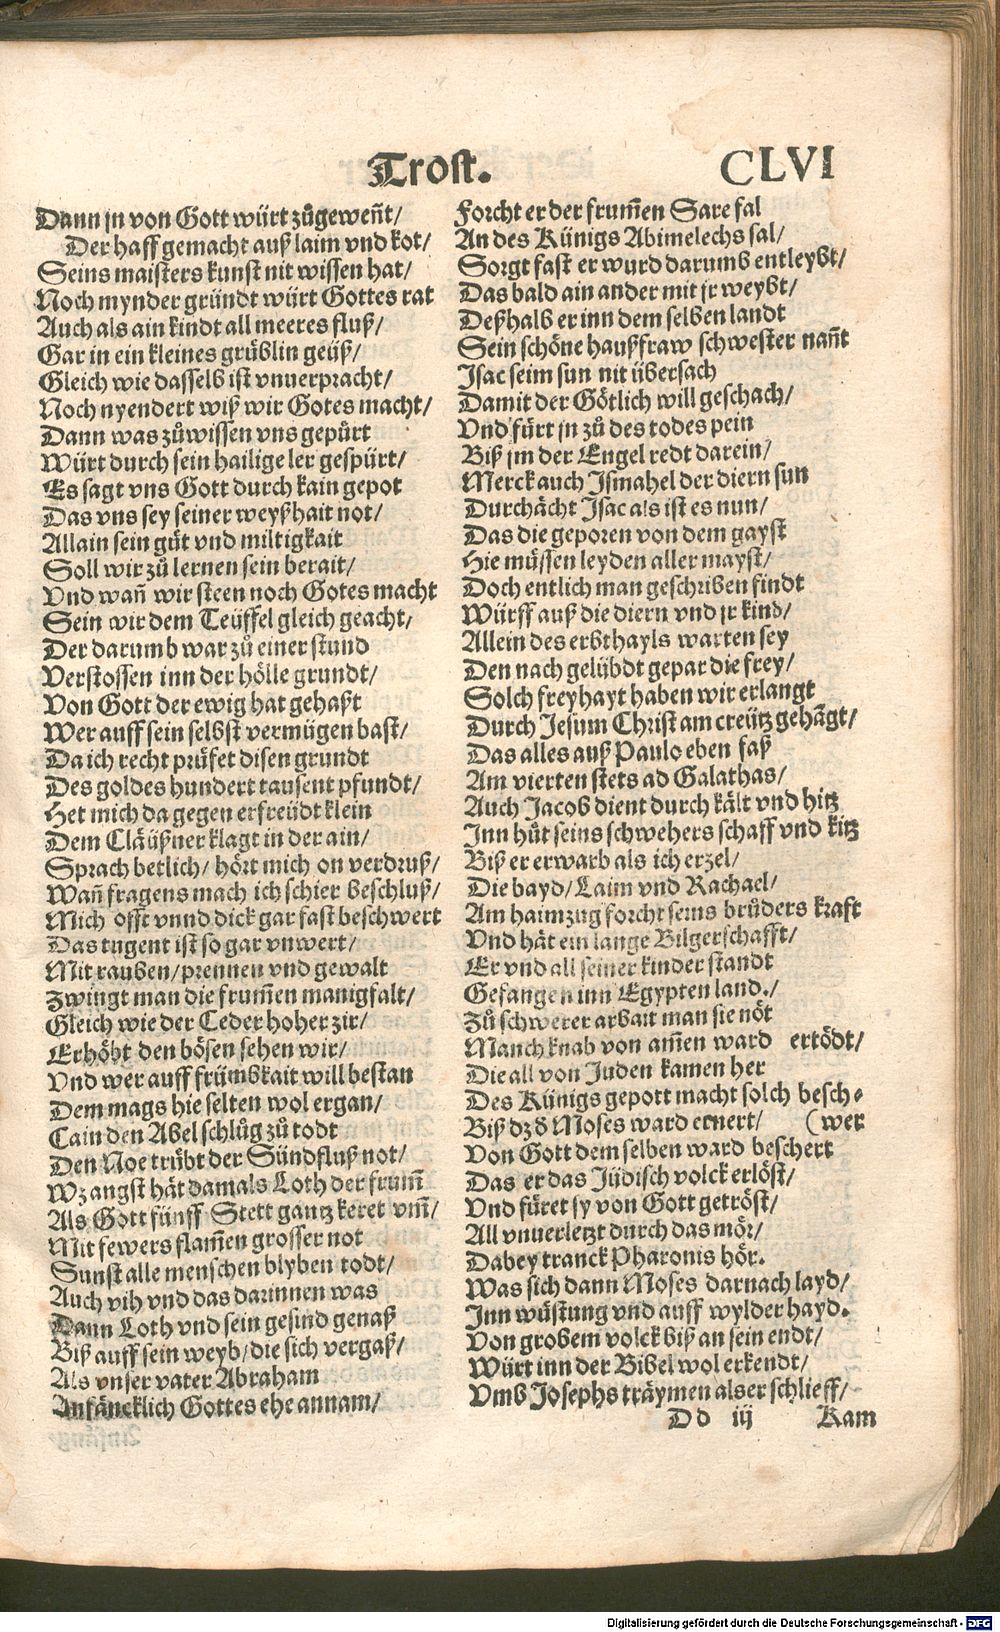 Trost. CLVI
Dann jn von Gott würt zůgeweñt/
Der haff gemacht auß laim vnd kot/
Seins maisters kunst nit wissen hat/
Noch mynder gründt würt Gottes rat
Auch als ain kindt all meeres fluß/
Gar in ein kleines grüblin geüß/
Gleich wie dasselb ist vnuerpracht/
Noch nyendert wiß wir Gotes macht/
Dann was zůwissen vns gepürt
Würt durch sein hailige ler gespürt/
Es sagt vns Gott durch kain gepot
Das vns sey seiner weyßhait not/
Allain sein güt vnd miltigkait
Soll wir zů lernen sein berait/
Vnd wañ wir steen noch Gotes macht
Sein wir dem Teüffel gleich geacht/
Der darumb war zů einer stund
Verstossen inn der hölle grundt/
Von Gott der ewig hat gehaßt
Wer auff sein selbst vermügen bast/
Da ich recht prüfet disen grundt
Des goldes hundert tausent pfundt/
Het mich da gegen erfreüdt klein
Dem Cläüßner klagt in der ain/
Sprach betlich/ hört mich on verdruß/
Wañ fragens mach ich schier beschluß/
Mich offt vnnd dick gar fast beschwert
Das tugent ist so gar vnwert/
Mit rauben/ prennen vnd gewalt
Zwingt man die frum̄en manigfalt/
Gleich wie der Ceder hoher zir/
Erhöht den bösen sehen wir/
Vnd wer auff frümbkait will bestan
Dem mags hie selten wol ergan/
Cain den Abel schlůg zů todt
Den Noe trübt der Sündfluß not/
Wz angst hät damals Loth der frum̄
Als Gott fünff Stett gantz keret vm̄/
Mit fewers flam̄en grosser not
Sunst alle menschen blyben todt/
Auch vih vnd das darinnen was
Dann Loth vnd sein gesind genaß
Biß auff sein weyb/ die sich vergaß/
Als vnser vater Abraham
Anfäncklich Gottes ehe annam/
Forcht er der frum̄en Sare fal
An des Künigs Abimelechs sal/
Sorgt fast er wurd darumb entleybt/
Das bald ain ander mit jr weybt/
Deßhalb er inn dem selben landt
Sein schöne haußfraw schwester nañt
Isac seim sun nit übersach
Damit der Götlich will geschach/
Vnd fürt jn zů des todes pein
Biß jm der Engel redt darein/
Merck auch Ismahel der diern sun
Durchächt Isac als ist es nun/
Das die geporen von dem gayst
Hie müssen leyden aller mayst/
Doch entlich man geschriben findt
Würff auß die diern vnd jr kind/
Allein des erbthayls warten sey
Den nach gelübdt gepar die frey/
Solch freyhayt haben wir erlangt
Durch Jesum Christ am creütz gehāgt/
Das alles auß Paulo eben faß
Am vierten stets ad Galathas/
Auch Jacob dient durch kält vnd hitz
Inn hůt seins schwehers schaff vnd kitz
Biß er erwarb als ich erzel/
Die bayd/ Laim vnd Rachael/
Am haimzug forcht seins brůders kraft
Vnd hät ein lange Bilgerschafft/
Er vnd all seiner kinder standt
Gefangen inn Egypten land./
Zů schwerer arbait man sie nöt
Manch knab von am̄en ward ertödt/
Die all von Juden kamen her
Des Künigs gepott macht solch besch-
Biß dz d Moses ward ernert/ (wer
Von Gott dem selben ward beschert
Das er das Jüdisch volck erlöst/
Vnd füret sy von Gott getröst/
All vnuerletzt durch das mör/
Dabey tranck Pharonis hör.
Was sich dann Moses darnach layd/
Inn wüstung vnd auff wylder hayd.
Von grobem volck biß an sein endt/
Würt inn der Bibel wol erkendt/
Vmb Josephs träymen als er schlieff/
Dd iij Kam
Digitalisierung gefördert durch die Deutsche Forschungsgemeinschaft - DFG